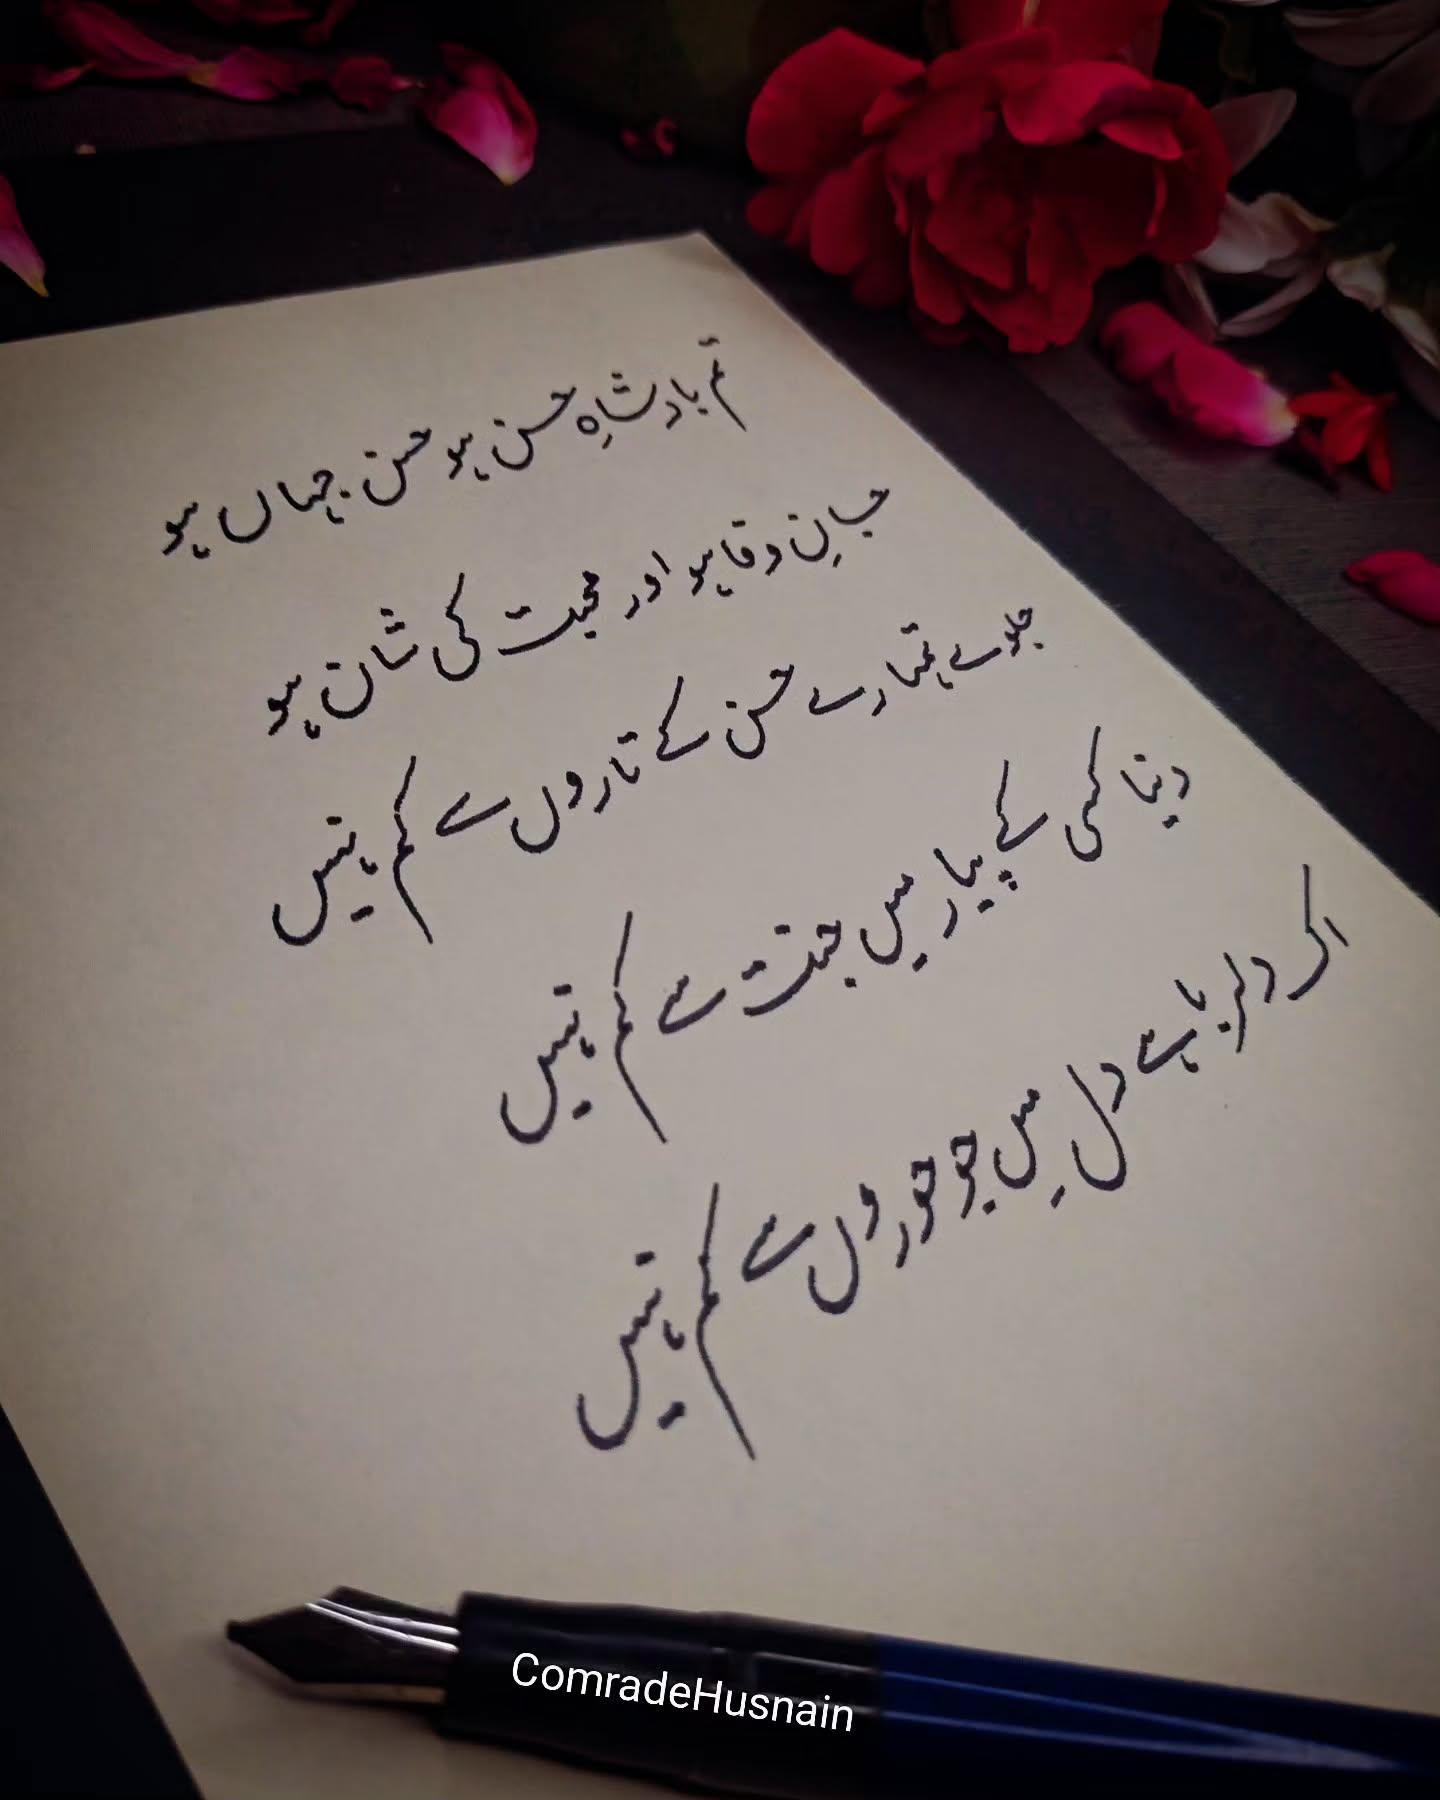 تم بادشاہِ حسن ہو حسن جہاں ہو
جانِ وفا ہو اور محبت کی شان ہو
جلوے تمہارے حسن کے تاروں سے کم نہیں
دنیا کسی کے پیار میں جنت سے کم نہیں
اک دلربا ہے دل میں جو حوروں سے کم نہیں
ComradeHusnain